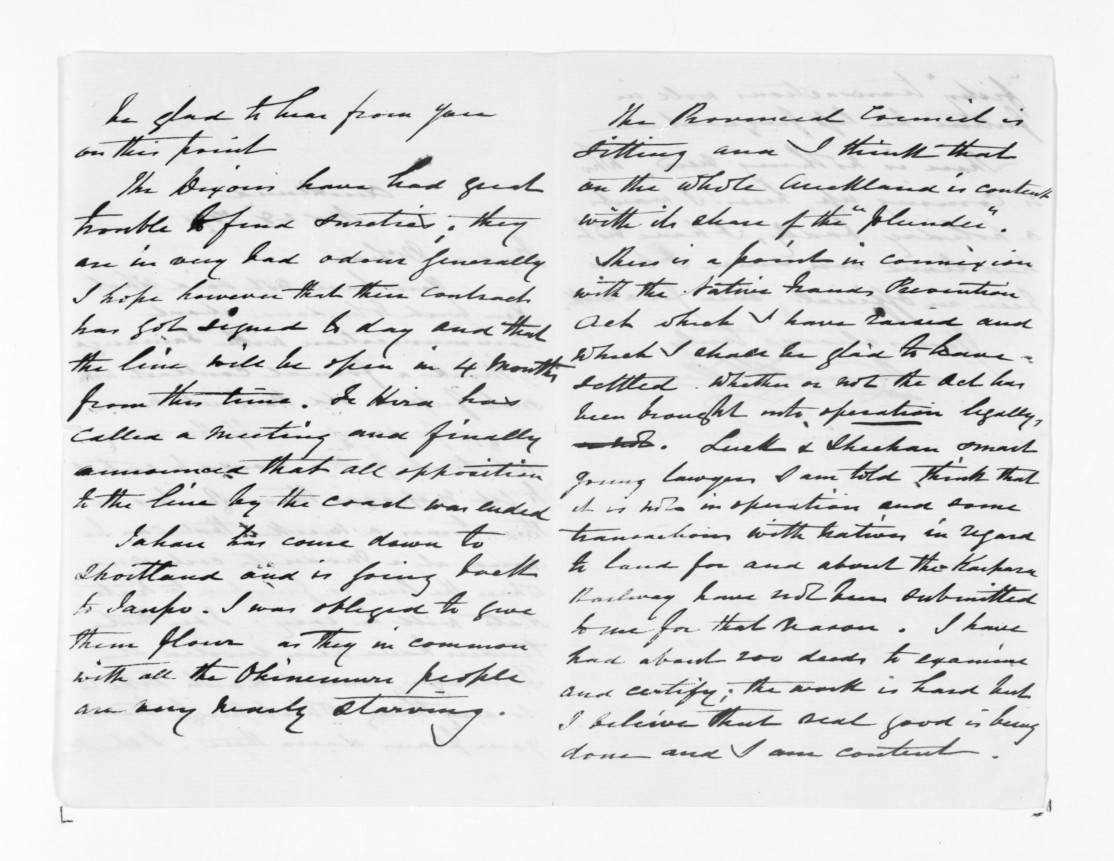 be glad to hear from you
on this point
The Dixons have had great
trouble to find sureties; they
are in very bad odour generally
I hope however that their contract
has got signed to day and that
the line will be open in 4 months
from this time. Te Hira has
called a meeting and finally
announced that all opposition
to the line by the coast was ended
has come down to
Shortland and is going back
to . I was obliged to give
them flour as they in common
with all the Ohinemuri people
are very nearly starving.
The Provincial Council is
sitting and I think that
on the whole Auckland is content
with its share of the "plunder".
There is a point in connexion
with the Native Frauds Prevention
Act which I have raised and
which I shall be glad to have
settled. Whether or not the Act has
been brought into operation legally,
. Luck & Sheehan smart
young lawyers I am told think that
it is not in operation and some
transactions with natives in regard
to land for and about the Kaipara
Railway have not been submitted
to me for that reason. I have
had about 200 deeds to examine
and certify; the work is hard but
I believe that real good is being
done and I am content.